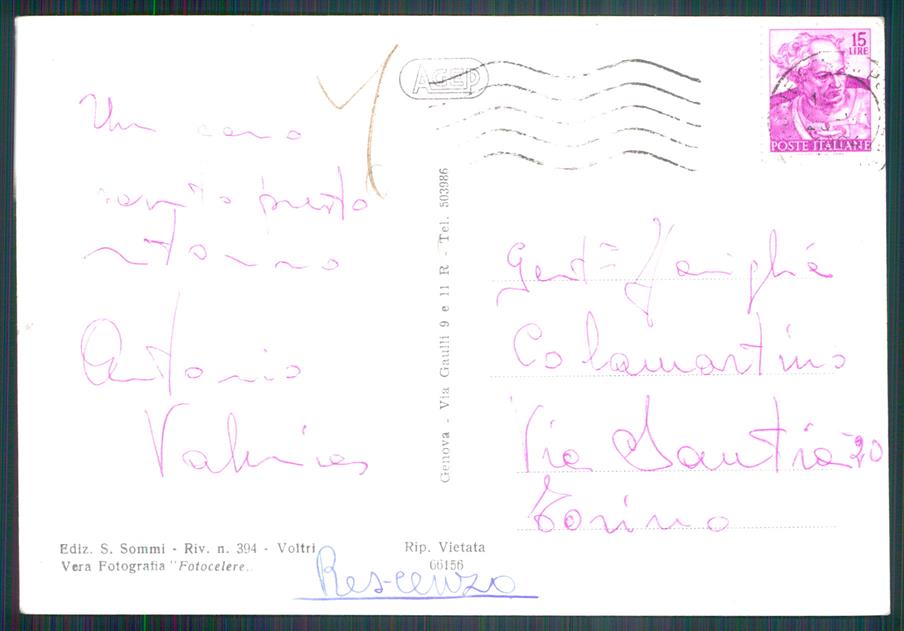 Un caro
saluto presto
ritorno
Antonio
AGIP
15
LIRE
POSTE ITALIANE
Genova - Via Gaulli 9 e 11 R - Tel. 503986
Gent= Famiglia
Colamartino
Via Santià 20
Torino
Ediz. S. Sommi - Riv. n. 394 - Voltri
Vera Fotografia "Fotocelere"
Rip. Vietata
66156